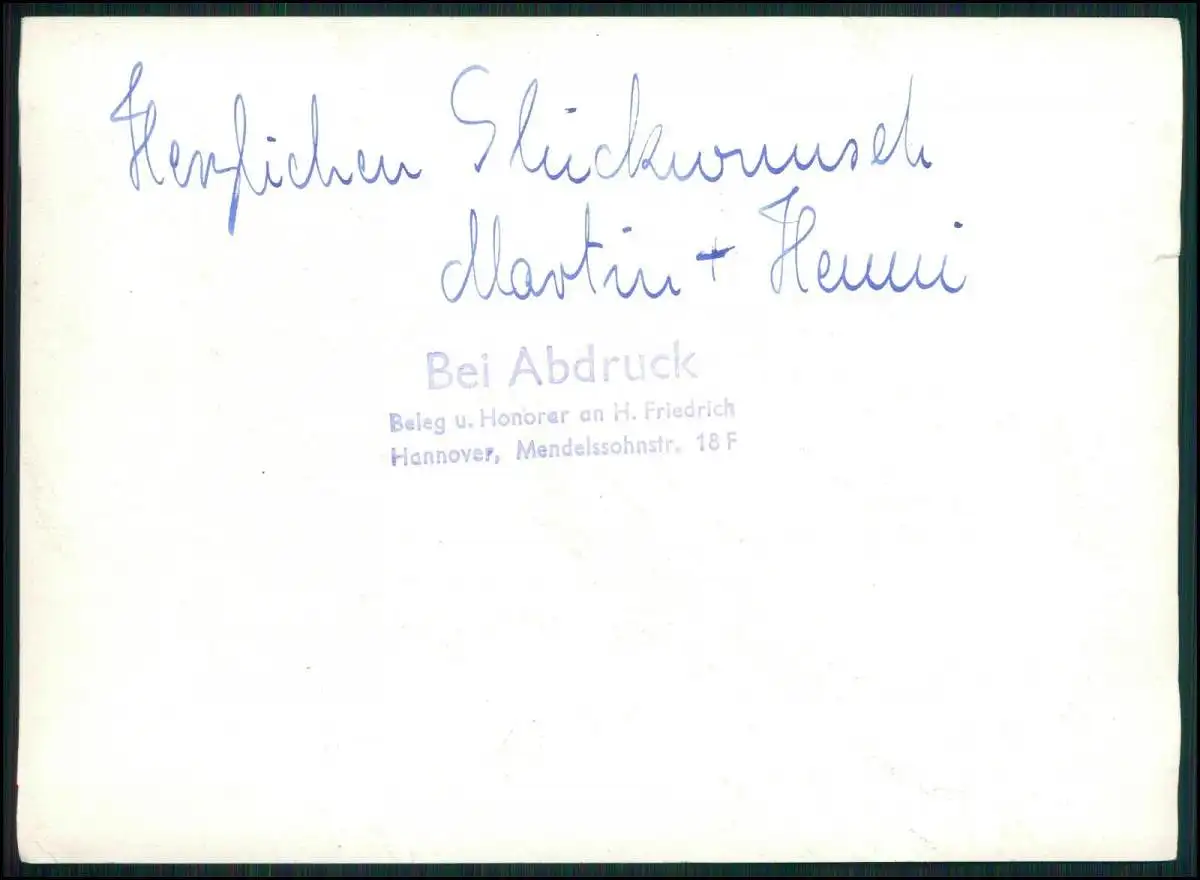 Herzlichen Glückwunsch
Martin + Henni
Bei Abdruck
Beleg u. Honorar an H. Friedrich
Hannover, Mendelssohnstr. 18 F